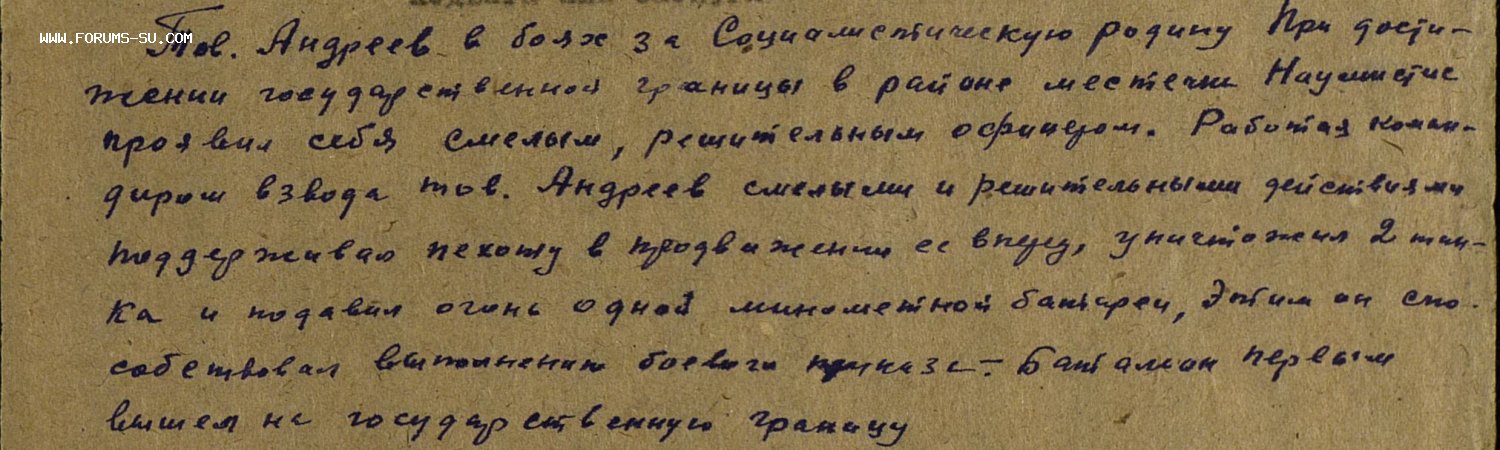 WWW.FORUMS-SU.COM
Тов. Андреев в боях за Социалистическую родину При дости-
жении государственной границы в районе местечка Наумистис
проявил себя смелым, решительным офицером. Работая коман-
диром взвода тов. Андреев смелыми и решительными действиями
поддерживал пехоту в продвижении ее вперед, уничтожил 2 тан-
ка и подавил огонь одной минометной батареи, Этим он спо-
собствовал выполнению боевого приказа – Батальон первым
вышел на государственную границу